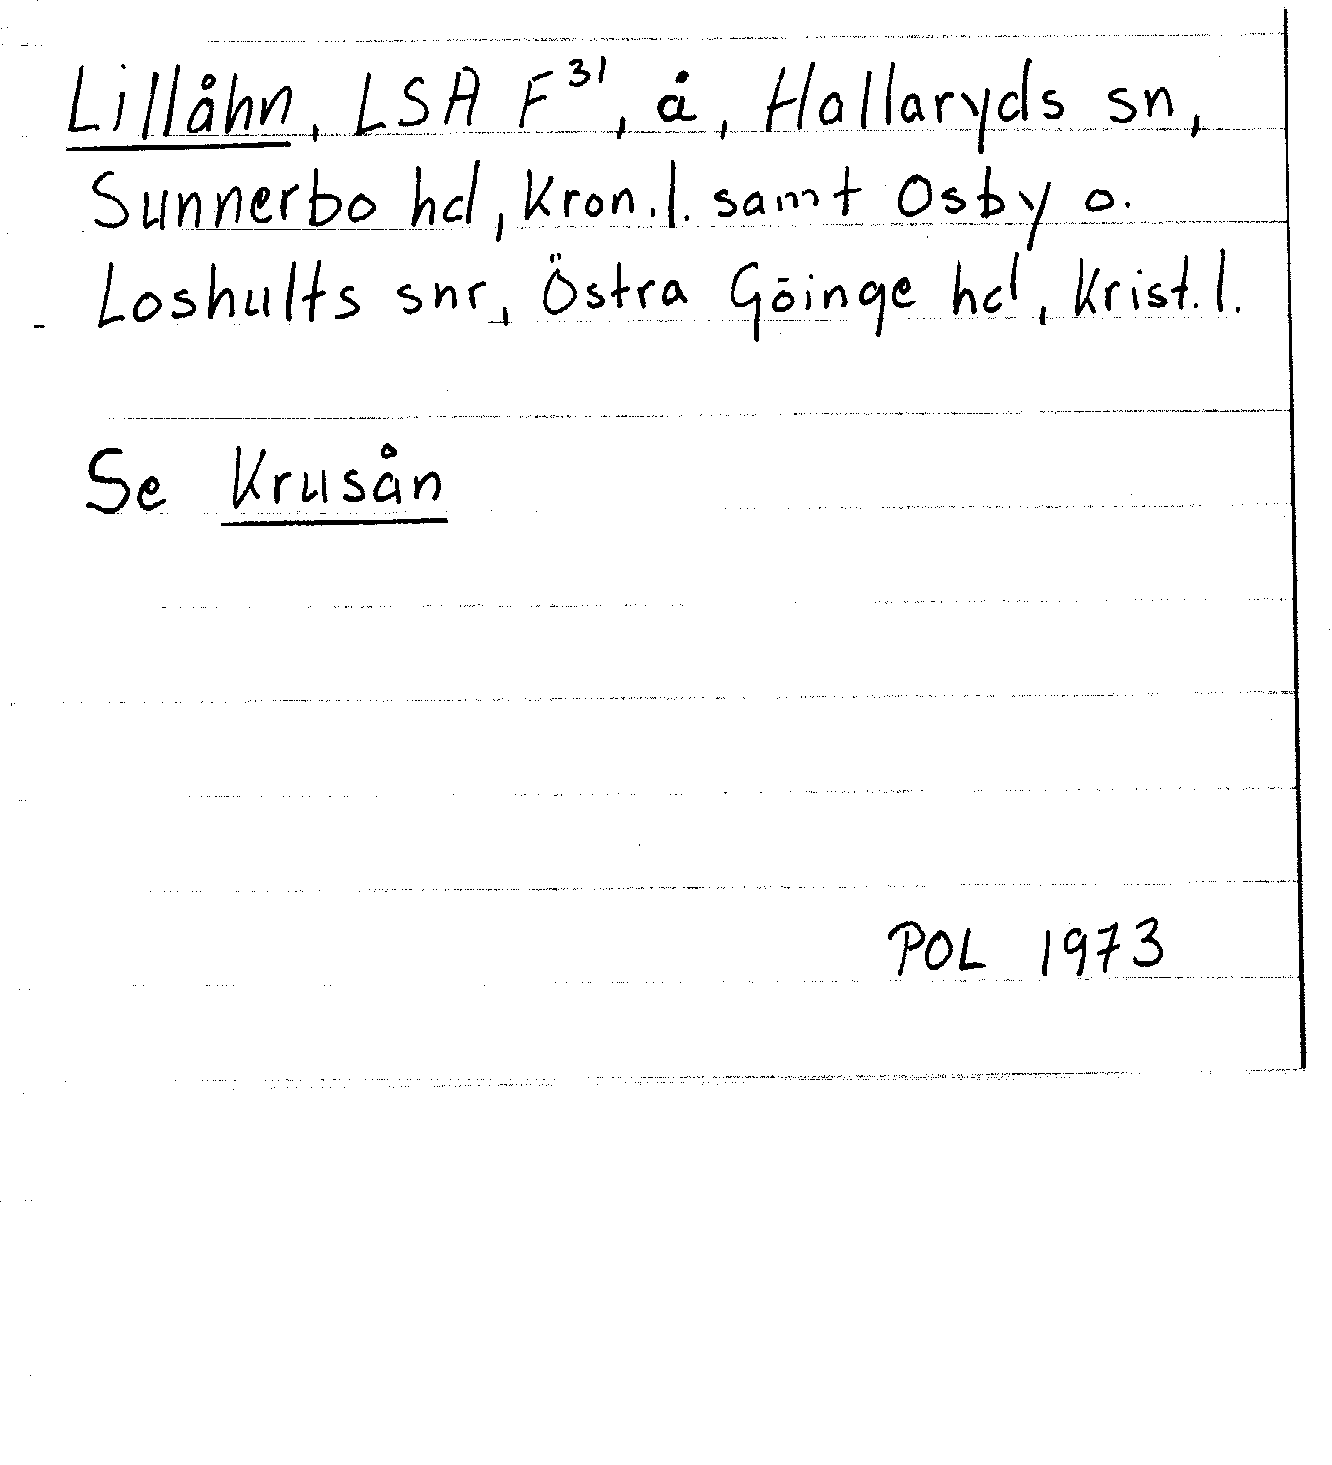 Lillåhn, LSA F³¹, å, Hallaryds sn,
Sunnerbo hd, Kron.l. samt Osby o.
Loshults snr, Östra Göinge hd, Krist.l.
Se Krusån
POL 1973